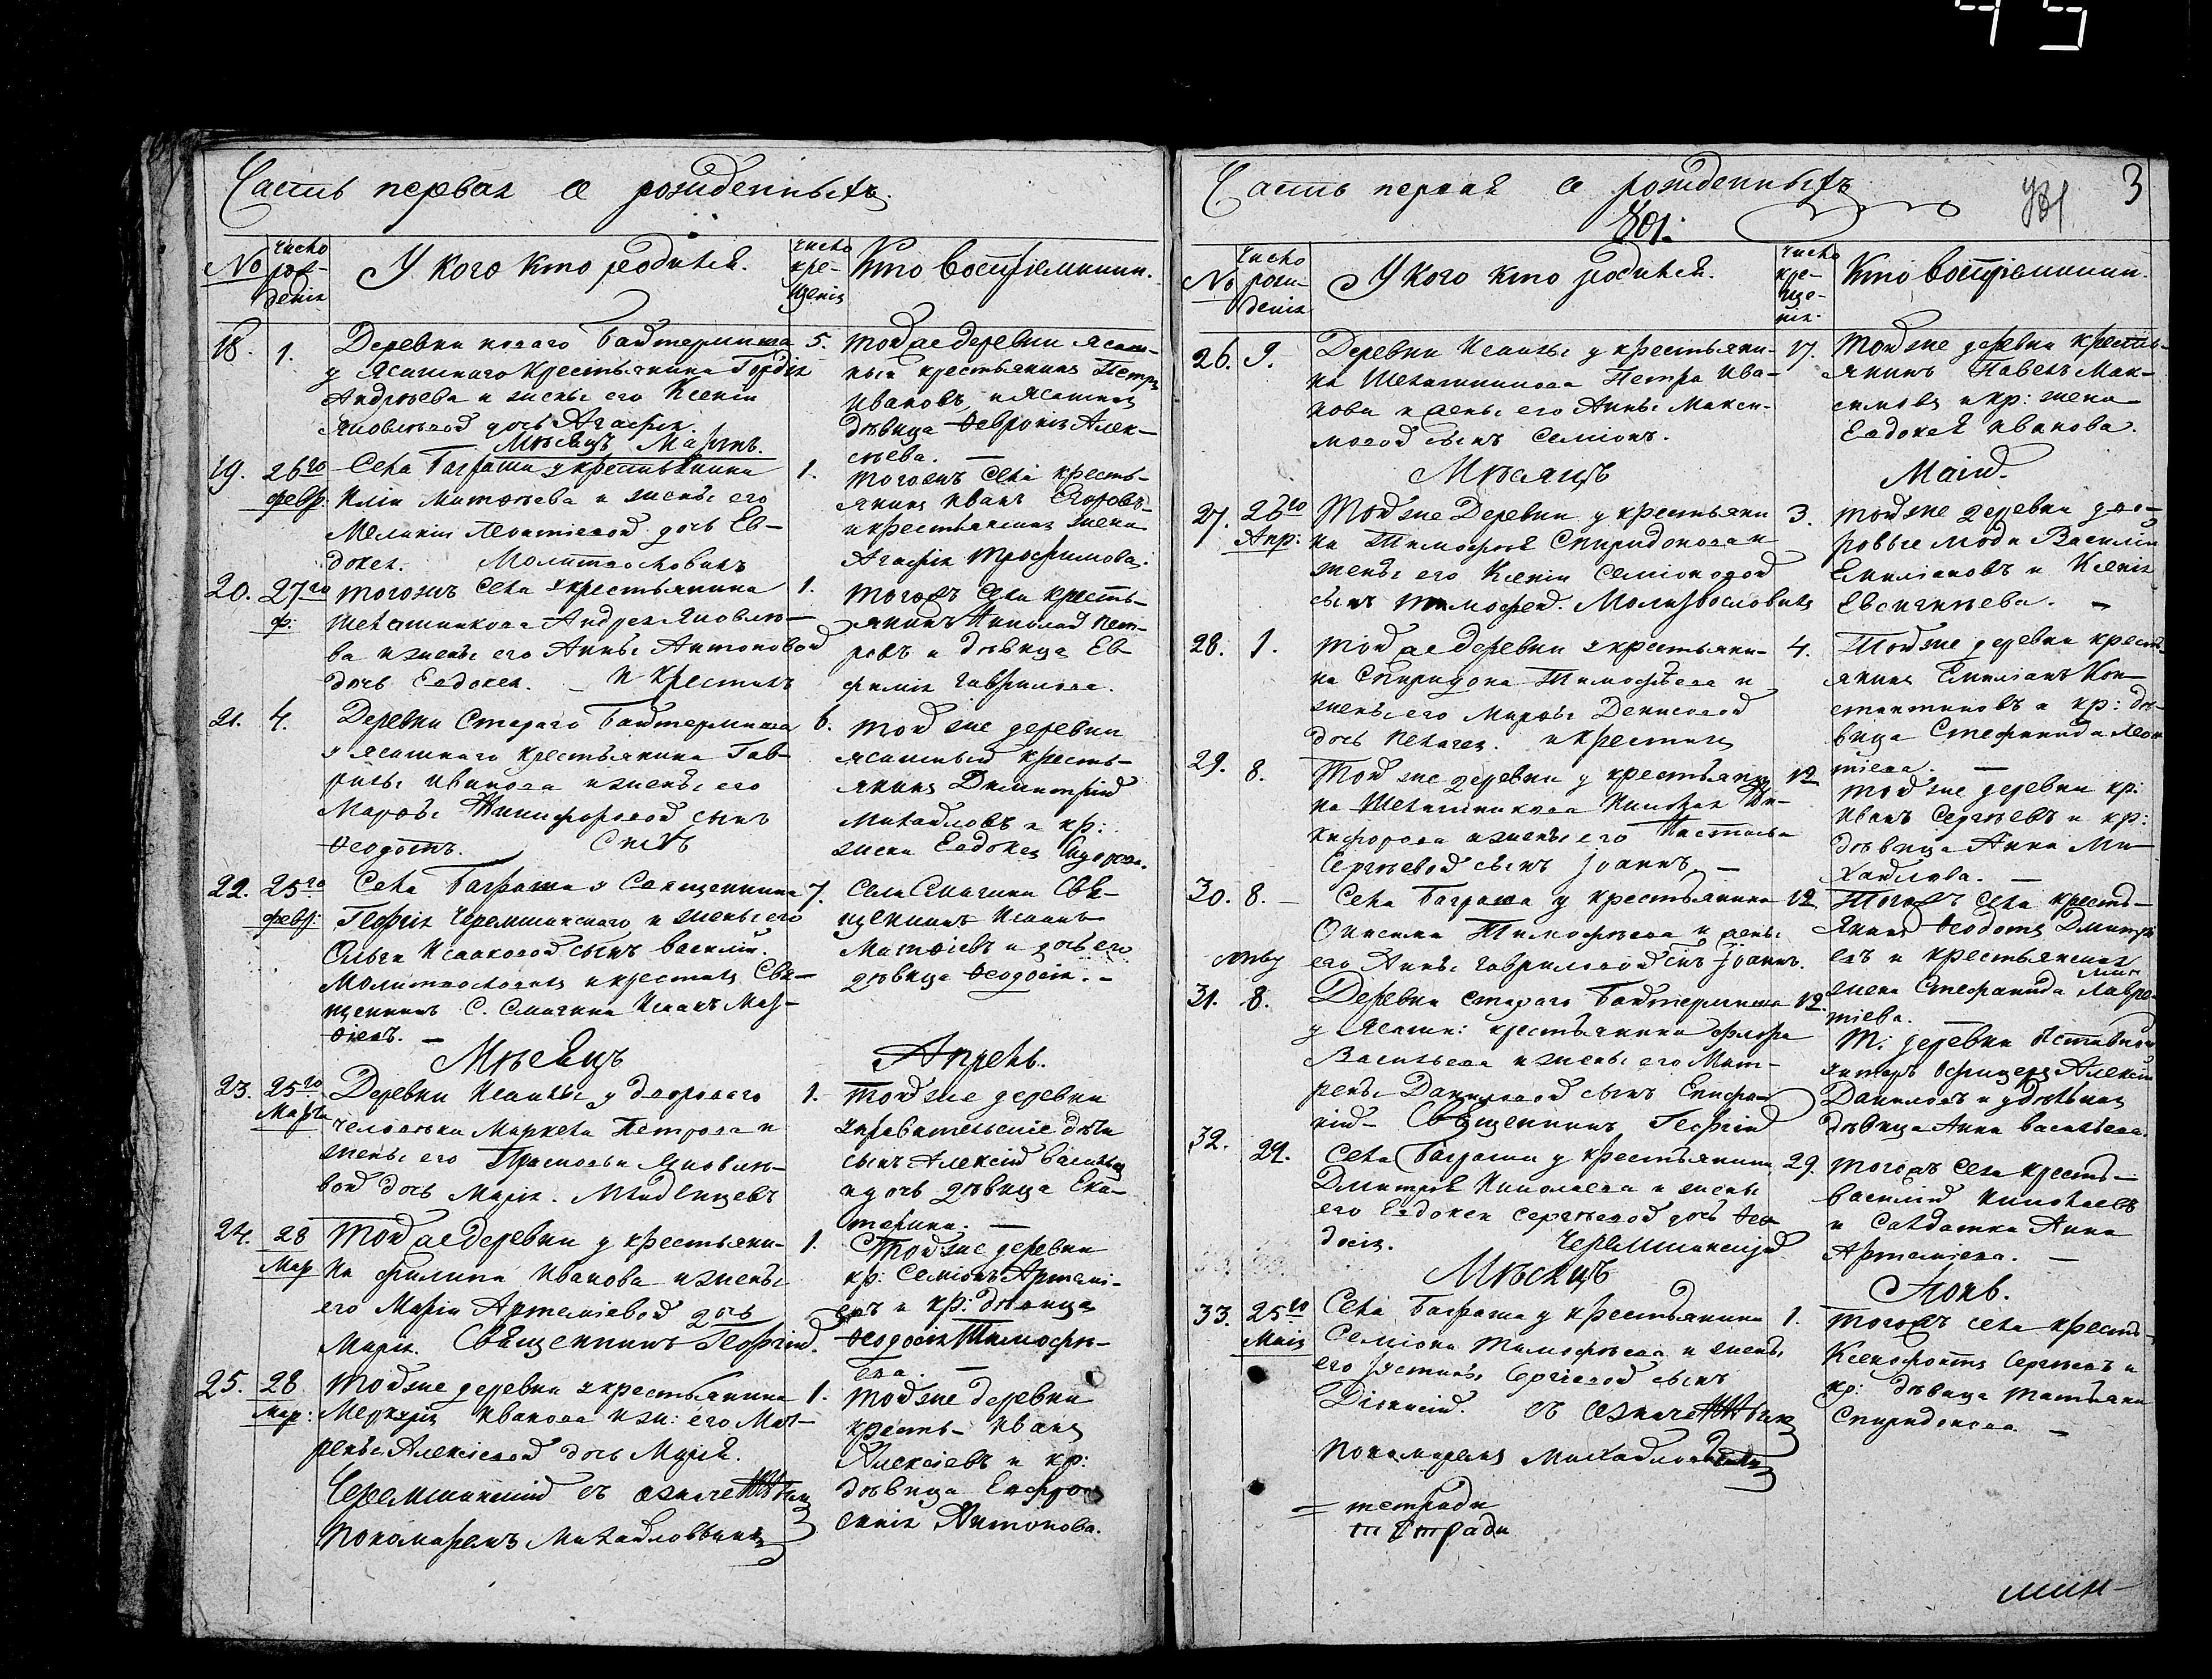 Часть первая о рожденныхъ.
№
число рож-
денія
У кого кто родился.
число
кре-
щенія
Кто воспріемники.
18.
1.
Деревни новаго Байтермиша
у Ясашнаго Крестьянина Гордія
Андреева и жены его Ксеніи
Яковлевой дочь Агафія.
5.
тойже деревни ясаш-
ный крестьянинъ Петръ
Ивановъ, и Ясашная
дѣвица Ѳевронія Алек-
сѣева.
Мѣсяцъ Мартъ.
19.
26го
февр.
Села Баграша у крестьянина
Иліи Матѳѣева и жены его
Меланіи Леонтіевой дочь Ев-
докея. Молитвословилъ
1.
тогожъ села кресть-
янинъ Иванъ Егоровъ
и крестьянская жена
Агафія Трофимова.
20.
27го
ф:
тогожъ села у крестьянина
Андрея Яковле-
ва и жены его Анны Антоновой
дочь Евдокея. и крестилъ
1.
тогожъ села кресть-
янинъ Николай Пет-
ровъ и дѣвица Ев-
фимія Гаврилова.
21.
4.
Деревни Стараго Байтермиша
у ясашнаго крестьянина Гав-
рилы Иванова и жены его
Марѳы Никифоровой сынъ
Ѳеодотъ.
6.
тойже деревни
ясашный кресть-
янинъ Димитрій
Михайловъ и кр:
жена Евдокея
22.
25го
февр:
Села Баграша у Священника
Георгія Черемшанскаго и жены его
Ольги Исааковой сынъ Василій.
Молитвословилъ и крестилъ Свя-
щенникъ С. Смагина Исаакъ Мат-
ѳіевъ.
7.
Села Смагина Свя-
щенникъ Исаакъ
Матѳіевъ и дочь его
дѣвица Ѳеодосія.
Мѣсяцъ Апрель.
23.
25го
Мар:
Деревни у двороваго
человѣка Маркела Петрова и
жены его Прасковьи Яковле-
вой дочь Марія. Младенцевъ
1.
тойже деревни
управительскіе дѣти
сынъ Алексій Васильевъ
и дочь дѣвица Ека-
терина.
24.
28
Мар
Тойже деревни у крестьяни-
на Филипа Иванова и жены
его Маріи Артеміевой дочь
Марія. Священникъ Георгій.
1.
Тойже деревни
кр: Семіонъ Артемі-
евъ и кр: дѣвица
Ѳеодосія Тимофѣ-
ева.
25.
28
мар:
Тойже деревни у крестьянина
Меркурія Иванова и ж: его Мат-
рены Алексіевой дочь Марія.
1.
Тойже деревни
кресть- Иванъ
Алексіевъ и кр:
дѣвица Евфро-
синія Антонова.
Черемшанскій съ
Пономаремъ Михайловымъ
Часть первая о рожденныхъ
3
№
число
рож-
денія
У кого кто родился.
число
кре-
ще-
нія.
Кто воспріемники.
26.
9.
Деревни у крестьяни-
на Петра Ива-
нова и жены его Анны Макси-
мовой сынъ Семіонъ.
17.
Тойже деревни кресть-
янинъ Павелъ Мак-
симовъ и кр: жена
Евдокея Иванова.
Мѣсяцъ Маій.
27.
26го
Апр:
Тойже Деревни у крестьяни
на Тимофѣя Спиридонова и
жены его Ксеніи Семіоновой
сынъ Тимофей. Молитвословилъ
3.
тойже деревни дво-
ровые люди Василій
Емиліановъ и Ксенія
Евсигнѣева.
28.
1.
Тойже деревни у крестьяни-
на Спиридона Тимофѣева и
жены его Марѳы Денисовой
дочь Пелагея. и крестилъ
4.
Тойже деревни кресть-
янинъ Емиліанъ Кон-
стантиновъ и кр: дѣ-
вица Стефанида Леон
тіева.
29.
8.
Тойже деревни у крестьяни
на Николая Ни-
кифорова и жены его Настасьи
Сергѣевой сынъ Іоаннъ
12
тойже деревни кр:
Иванъ Сергѣевъ и кр:
дѣвица Анна Ми-
хайлова.
30.
8.
Села Баграша у крестьянина
Онисима Тимофѣева и жены
его Анны Гавриловой сынъ Іоаннъ.
12
Тогожъ села кресть-
янинъ Ѳеодотъ Дмитрі
евъ и крестьянская
жена Стефанида Лавре-
тіева.
31.
8.
Деревни стараго Байтермиша
у Ясаш: крестьянина Флора
Васильева и жены его Мат-
рены Даниловой сынъ Епифа-
ній Священникъ Георгій
12.
Т: деревни Отставной
унтеръ Офицеръ Алексій
Даниловъ и удѣльная
дѣвица Анна Васильева.
32.
29.
Села Баграша у крестьянина
Дмитрія Николаева и жены
его Евдокеи Сергѣевой дочь Ѳео
досія. Черемшанскій
29.
тогожъ села кресть-
Василій Николаевъ
и Салдатка Анна
Артеміева.
Мѣсяцъ Іюнь.
33.
25го
Маія
Села Баграша у крестьянина
Семіона Тимофѣева и жены
его Устиньи Сергіевой сынъ
Діонисій. съ
Пономаремъ Михайловымъ
1.
тогожъ села кресть-
Ксенофонтъ Сергѣевъ и
кр: дѣвица Татьяна
Спиридонова.
тетради
тетради